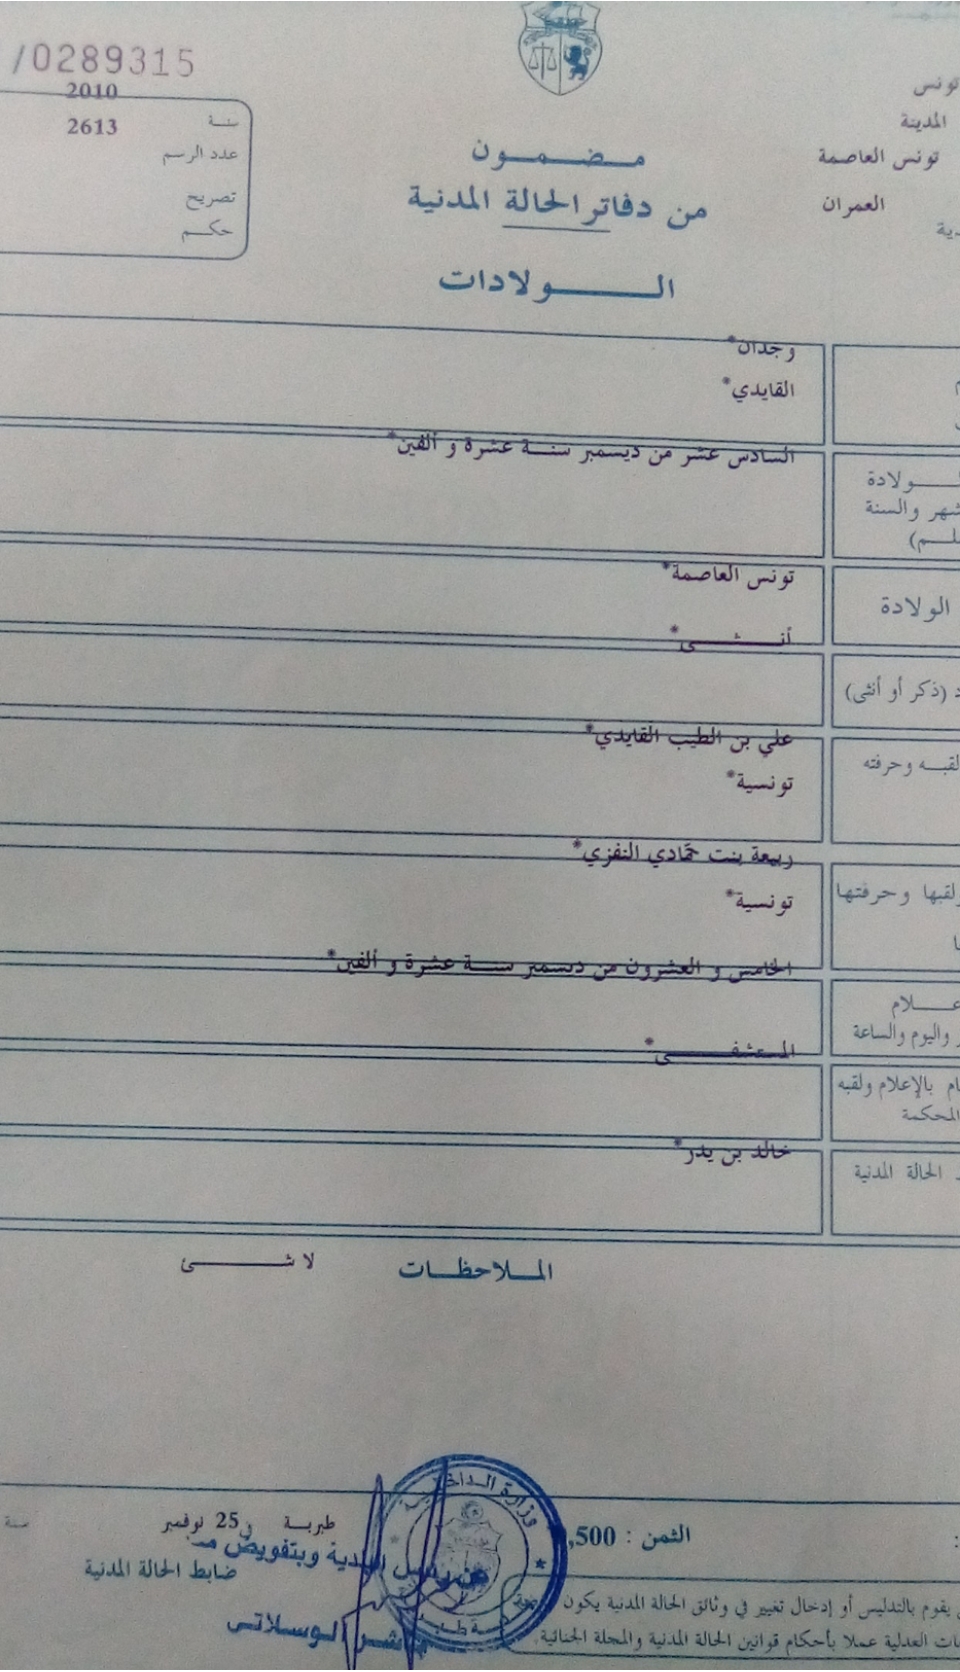 /0289315
2010
سنة
2613
عدد الرسم
تصريح
حكم
تونس
المدينة
تونس العاصمة
العمران
مضمون
من دفاتر الحالة المدنية
الولادات
وجدان*
القايدي*
السادس عشر من ديسمبر سنة عشرة و ألفين*
الولادة
شهر والسنة
تونس العاصمة*
الولادة
أنثى*
(ذكر أو أنثى)
علي بن الطيب القايدي*
لقبه وحرفته
تونسية*
ربيعة بنت حمادي النفزي*
ولقبها وحرفتها
تونسية*
الخامس و العشرون من ديسمبر سنة عشرة و ألفين*
واليوم والساعة
المستشفى*
بالإعلام ولقبه
المحكمة
خالد بن يدر*
الحالة المدنية
الملاحظات
لا شئ
وزارة الداخلية
الثمن : 500,
طبربة في 25 نوفمبر سنة
ضابط الحالة المدنية
الوسلاتي
يقوم بالتدليس أو إدخال تغيير في وثائق الحالة المدنية يكون
العدلية عملا بأحكام قوانين الحالة المدنية والمجلة الجنائية